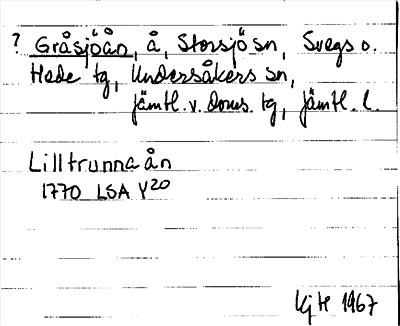 ? Gråsjöån, å, Storsjö sn, Svegs o.
Hede tg, Undersåkers sn,
jämtl. v. doms. tg, jämtl. l.
Lilltrunnaån
1770 LSA Y20
KjH 1967